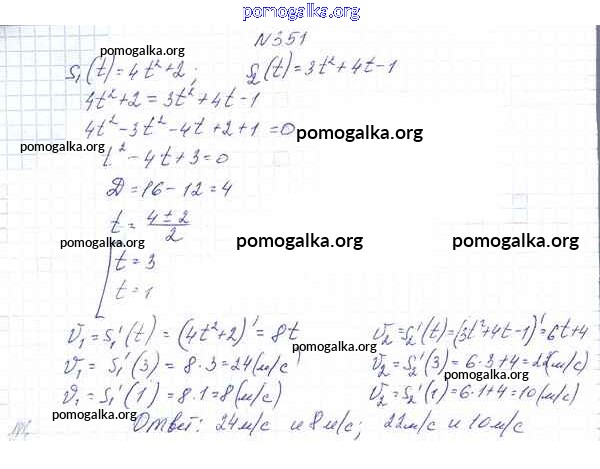 pomogalka.org
N351
pomogalka.org
S₁(t)=4t²+2; S₂(t)=3t²+4t-1
4t²+2=3t²+4t-1
4t²-3t²-4t+2+1=0
pomogalka.org
pomogalka.org
t²-4t+3=0
D=16-12=4
t=(4±2)/2
pomogalka.org pomogalka.org pomogalka.org
t=3
t=1
V₁=S₁'(t)=(4t²+2)'=8t V₂=S₂'(t)=(3t²+4t-1)'=6t+4
pomogalka.org
V₁=S₁'(3)=8·3=24(м/с) V₂=S₂'(3)=6·3+4=22(м/с)
pomogalka.org
V₁=S₁'(1)=8·1=8(м/с) V₂=S₂'(1)=6·1+4=10(м/с)
pomogalka.org
Ответ: 24м/с и 8м/с; 22м/с и 10м/с